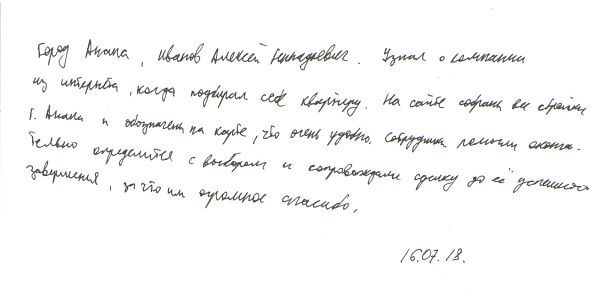 Город Анапа, Иванов Алексей Геннадьевич. Узнал о компании
из интернета, когда подбирал себе квартиру. На сайте собраны все стройки
г. Анапа и обозначены на карте, что очень удобно. Сотрудники помогли оконча-
тельно определится с выбором и сопровождали сделку до её успешного
завершения, за что им огромное спасибо.
16.07.18.